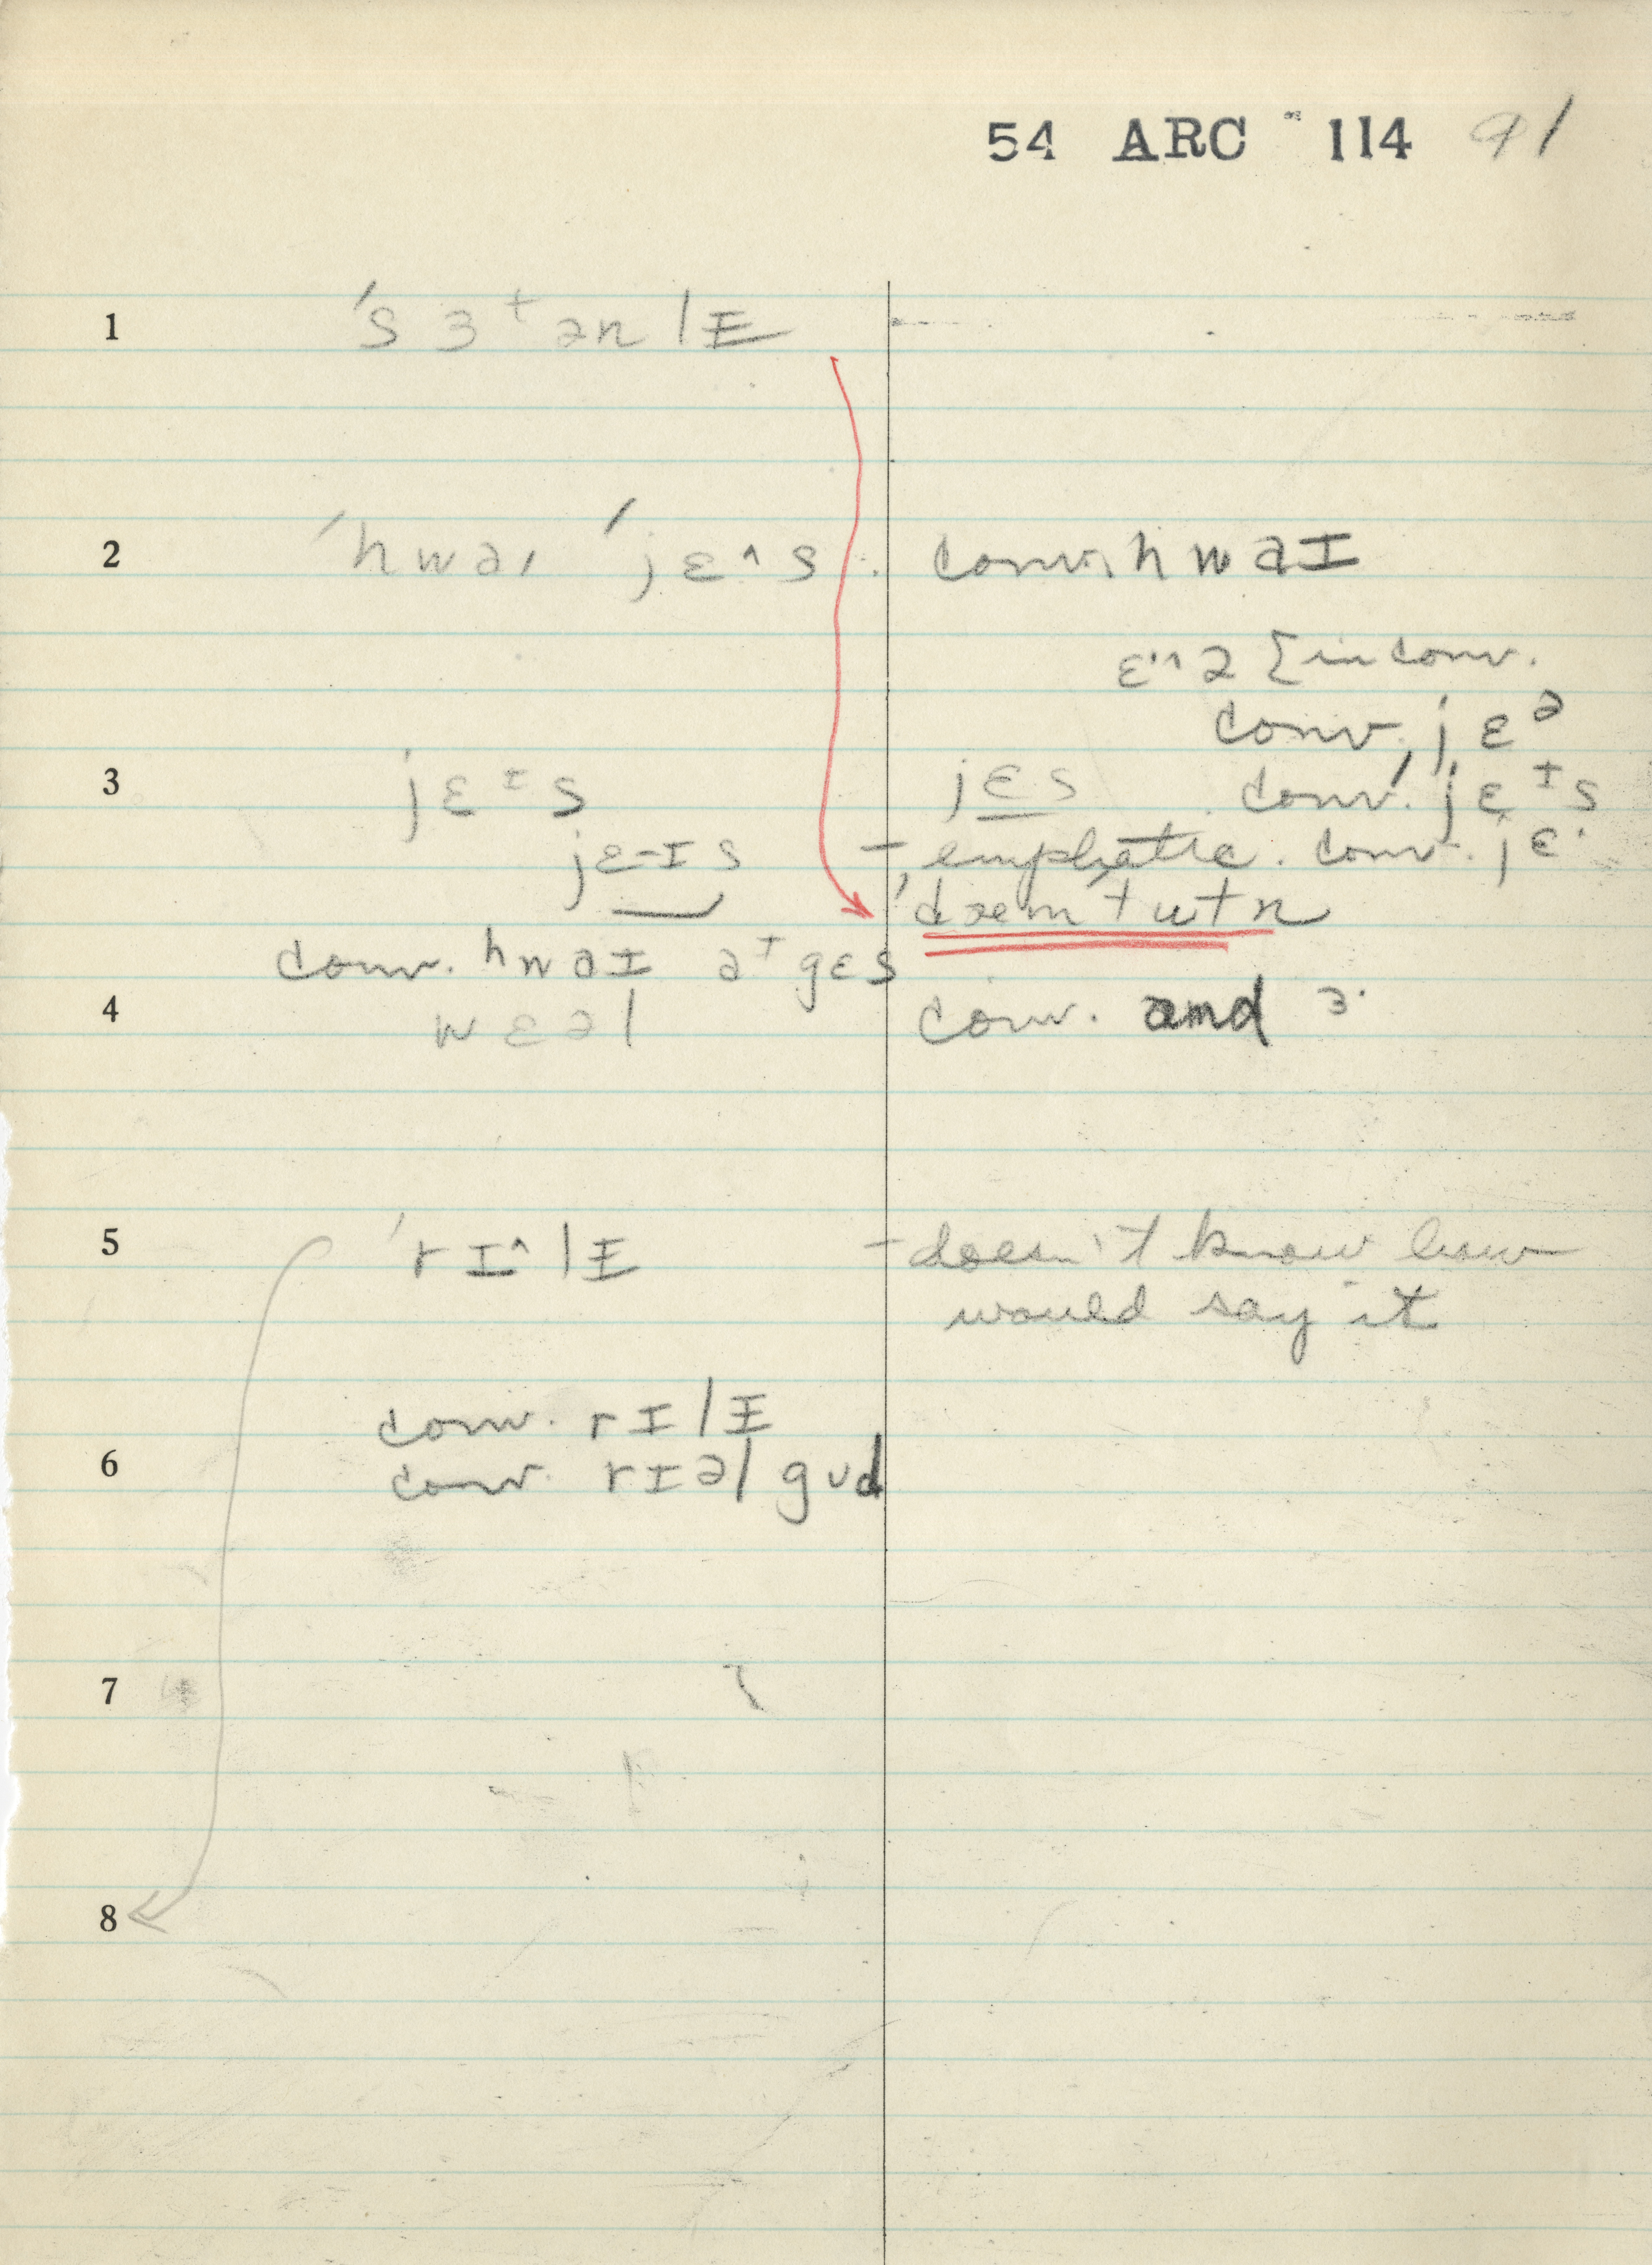 54 ARC 114 91
1 ˈs ɜ ᵗ ən l ɪ
2 ˈh w a ɪ ˈj ɛ ^ s . conv. h w a ɪ
ɛ·^ ə [in conv.
conv. j ɛ ᵊ
3 j ɛ ᶦ s j ɛ s conv. ˈj ɛ ᶦ s
j ɛ-ɪ s – emphatic. conv. j ɛ·
ˈdæm t ɯ t n
conv. h w a ɪ ə ᶦ g ɛ s
4 w ɛ ə l conv. and ɜ·
5 ˈr ɪ^ l ɪ – doesn't know how
would say it
conv. r ɪ l ɪ
6 conv. r ɪ ə l g ʊ d
7
8